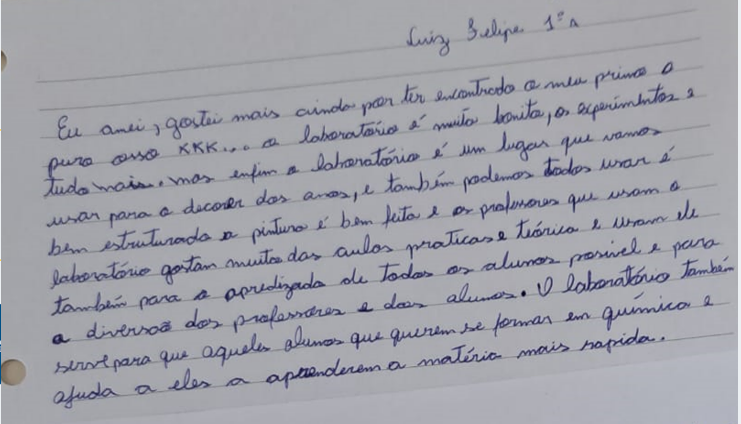 Luiz Felipe 1º A
Eu amei, gostei mais ainda por ter encontrado o meu primo o
puro osso KKK... o laboratório é muito bonito, os experimentos e
tudo mais. mas enfim o laboratório é um lugar que vamos
usar para o decorer dos anos, e também podemos todos usar é
bem estruturado a pintura é bem feita e os professores que usam o
laboratório gostam muito das aulas praticas e teórica e usam ele
também para o apredizado de todos os alunos posivel e para
a diversão dos professores e dos alunos. O laboratório também
serve para que aqueles alunos que querem se formar em química e
ajuda a eles a aprenderem a matéria mais rapida.